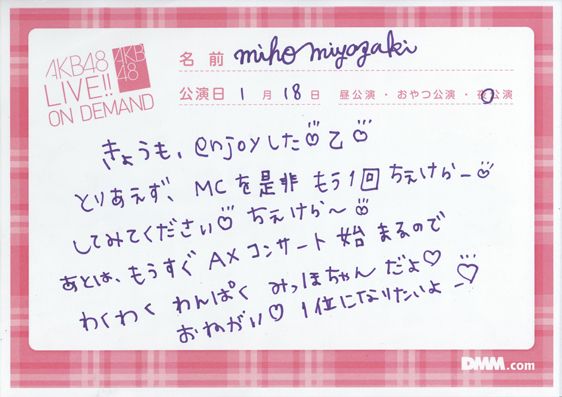 AKB48
LIVE!!
ON DEMAND
AKB
48
名前 miho miyazaki
公演日 1月18日 昼公演・おやつ公演・夜公演
きょうも、@njoyした♡乙♡
とりあえず、MCを是非もう1回ちぇけらー♡
してみてください♡ちぇけら〜♡
あとは、もうすぐAXコンサート始まるので
わくわくわんぱくみっほちゃんだよ♡
おねがい♡1位になりたいよー♡
DMM.com